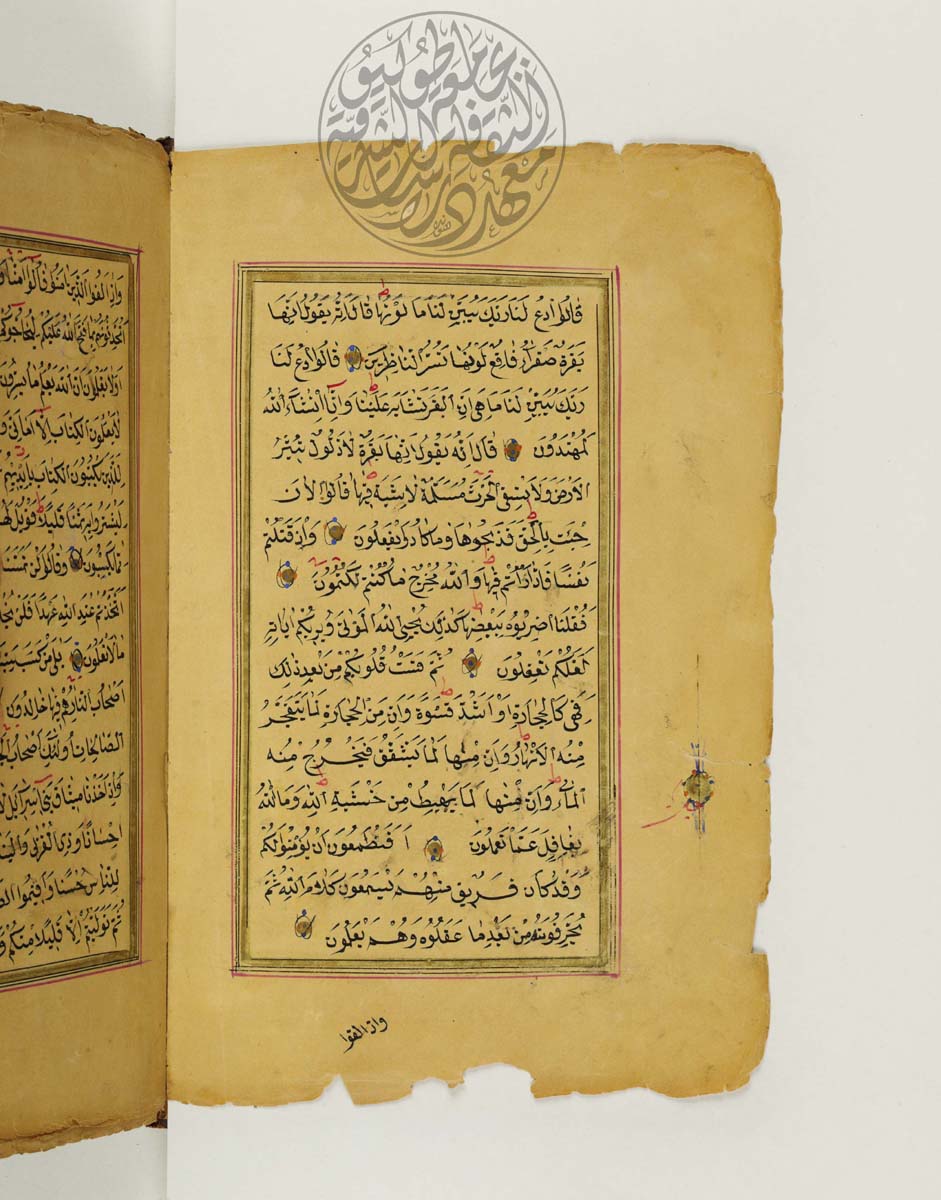 معهد دراسات الثقافة الشرقية بجامعة طوكيو
قَالُوا ادْعُ لَنَا رَبَّكَ يُبَيِّنْ لَنَا مَا لَوْنُهَا قَالَ اِنَّهُ يَقُولُ اِنَّهَا
بَقَرَةٌ صَفْرَاءُ فَاقِعٌ لَوْنُهَا تَسُرُّ النَّاظِرِينَ قَالُوا ادْعُ لَنَا
رَبَّكَ يُبَيِّنْ لَنَا مَا هِيَ اِنَّ الْبَقَرَ تَشَابَهَ عَلَيْنَا وَاِنَّا اِنْ شَاءَ اللهُ
لَمُهْتَدُونَ قَالَ اِنَّهُ يَقُولُ اِنَّهَا بَقَرَةٌ لَا ذَلُولٌ تُثِيرُ
الْاَرْضَ وَلَا تَسْقِي الْحَرْثَ مُسَلَّمَةٌ لَا شِيَةَ فِيهَا قَالُوا الْاٰنَ
جِئْتَ بِالْحَقِّ فَذَبَحُوهَا وَمَا كَادُوا يَفْعَلُونَ وَاِذْ قَتَلْتُمْ
نَفْسًا فَادَّارَأْتُمْ فِيهَا وَاللهُ مُخْرِجٌ مَا كُنْتُمْ تَكْتُمُونَ
فَقُلْنَا اضْرِبُوهُ بِبَعْضِهَا كَذٰلِكَ يُحْيِي اللهُ الْمَوْتٰى وَيُرِيكُمْ اٰيَاتِهِ
لَعَلَّكُمْ تَعْقِلُونَ ثُمَّ قَسَتْ قُلُوبُكُمْ مِنْ بَعْدِ ذٰلِكَ
فَهِيَ كَالْحِجَارَةِ اَوْ اَشَدُّ قَسْوَةً وَاِنَّ مِنَ الْحِجَارَةِ لَمَا يَتَفَجَّرُ
مِنْهُ الْاَنْهَارُ وَاِنَّ مِنْهَا لَمَا يَشَّقَّقُ فَيَخْرُجُ مِنْهُ
الْمَاءُ وَاِنَّ مِنْهَا لَمَا يَهْبِطُ مِنْ خَشْيَةِ اللهِ وَمَا اللهُ
بِغَافِلٍ عَمَّا تَعْمَلُونَ اَفَتَطْمَعُونَ اَنْ يُؤْمِنُوا لَكُمْ
وَقَدْ كَانَ فَرِيقٌ مِنْهُمْ يَسْمَعُونَ كَلَامَ اللهِ ثُمَّ
يُحَرِّفُونَهُ مِنْ بَعْدِ مَا عَقَلُوهُ وَهُمْ يَعْلَمُونَ
واذا لقوا
وَاِذَا لَقُوا الَّذِينَ اٰمَنُوا قَالُوا اٰمَنَّا
اَتُحَدِّثُونَهُمْ بِمَا فَتَحَ اللهُ عَلَيْكُمْ لِيُحَاجُّوكُمْ
اَوَلَا يَعْلَمُونَ اَنَّ اللهَ يَعْلَمُ مَا يُسِرُّونَ
لَا يَعْلَمُونَ الْكِتَابَ اِلَّا اَمَانِيَّ
لِلَّذِينَ يَكْتُبُونَ الْكِتَابَ بِاَيْدِيهِمْ
لِيَشْتَرُوا بِهِ ثَمَنًا قَلِيلًا فَوَيْلٌ لَهُمْ
مِمَّا يَكْسِبُونَ وَقَالُوا لَنْ تَمَسَّنَا
اَتَّخَذْتُمْ عِنْدَ اللهِ عَهْدًا فَلَنْ
مَا لَا تَعْلَمُونَ بَلٰى مَنْ كَسَبَ
اَصْحَابُ النَّارِ هُمْ فِيهَا خَالِدُونَ
الصَّالِحَاتِ اُولٰئِكَ اَصْحَابُ
وَاِذْ اَخَذْنَا مِيثَاقَ بَنِي اِسْرَائِيلَ
اِحْسَانًا وَذِي الْقُرْبٰى
لِلنَّاسِ حُسْنًا وَاَقِيمُوا
ثُمَّ تَوَلَّيْتُمْ اِلَّا قَلِيلًا مِنْكُمْ